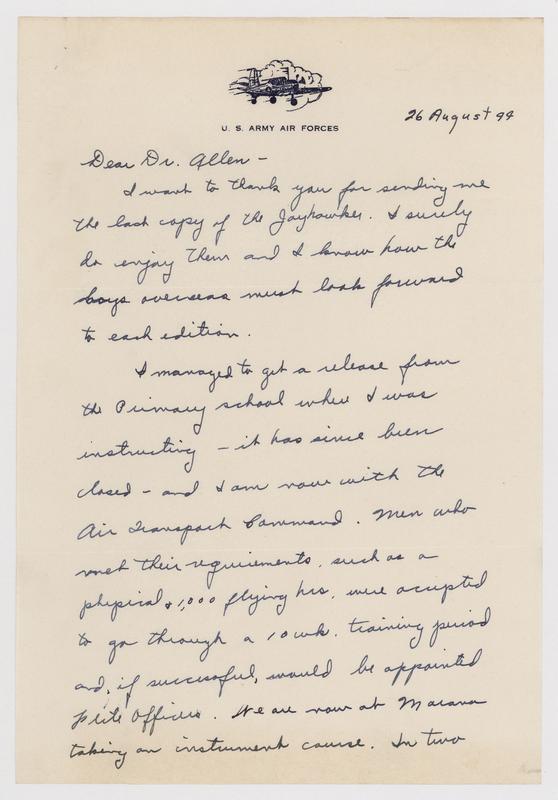 U. S. ARMY AIR FORCES
26 August 44
Dear Dr. Allen -
I want to thank you for sending me
the last copy of the Jayhawker. I surely
do enjoy them and I know how the
boys overseas must look forward
to each edition.
I managed to get a release from
the Primary school where I was
instructing - it has since been
closed - and I am now with the
Air Transport Command. Men who
met their requirements, such as a
physical & 1,000 flying hrs. were accepted
to go through a 10 wk. training period
and, if successful, would be appointed
Flite Officers. We are now at Marana
taking an instrument course. In two